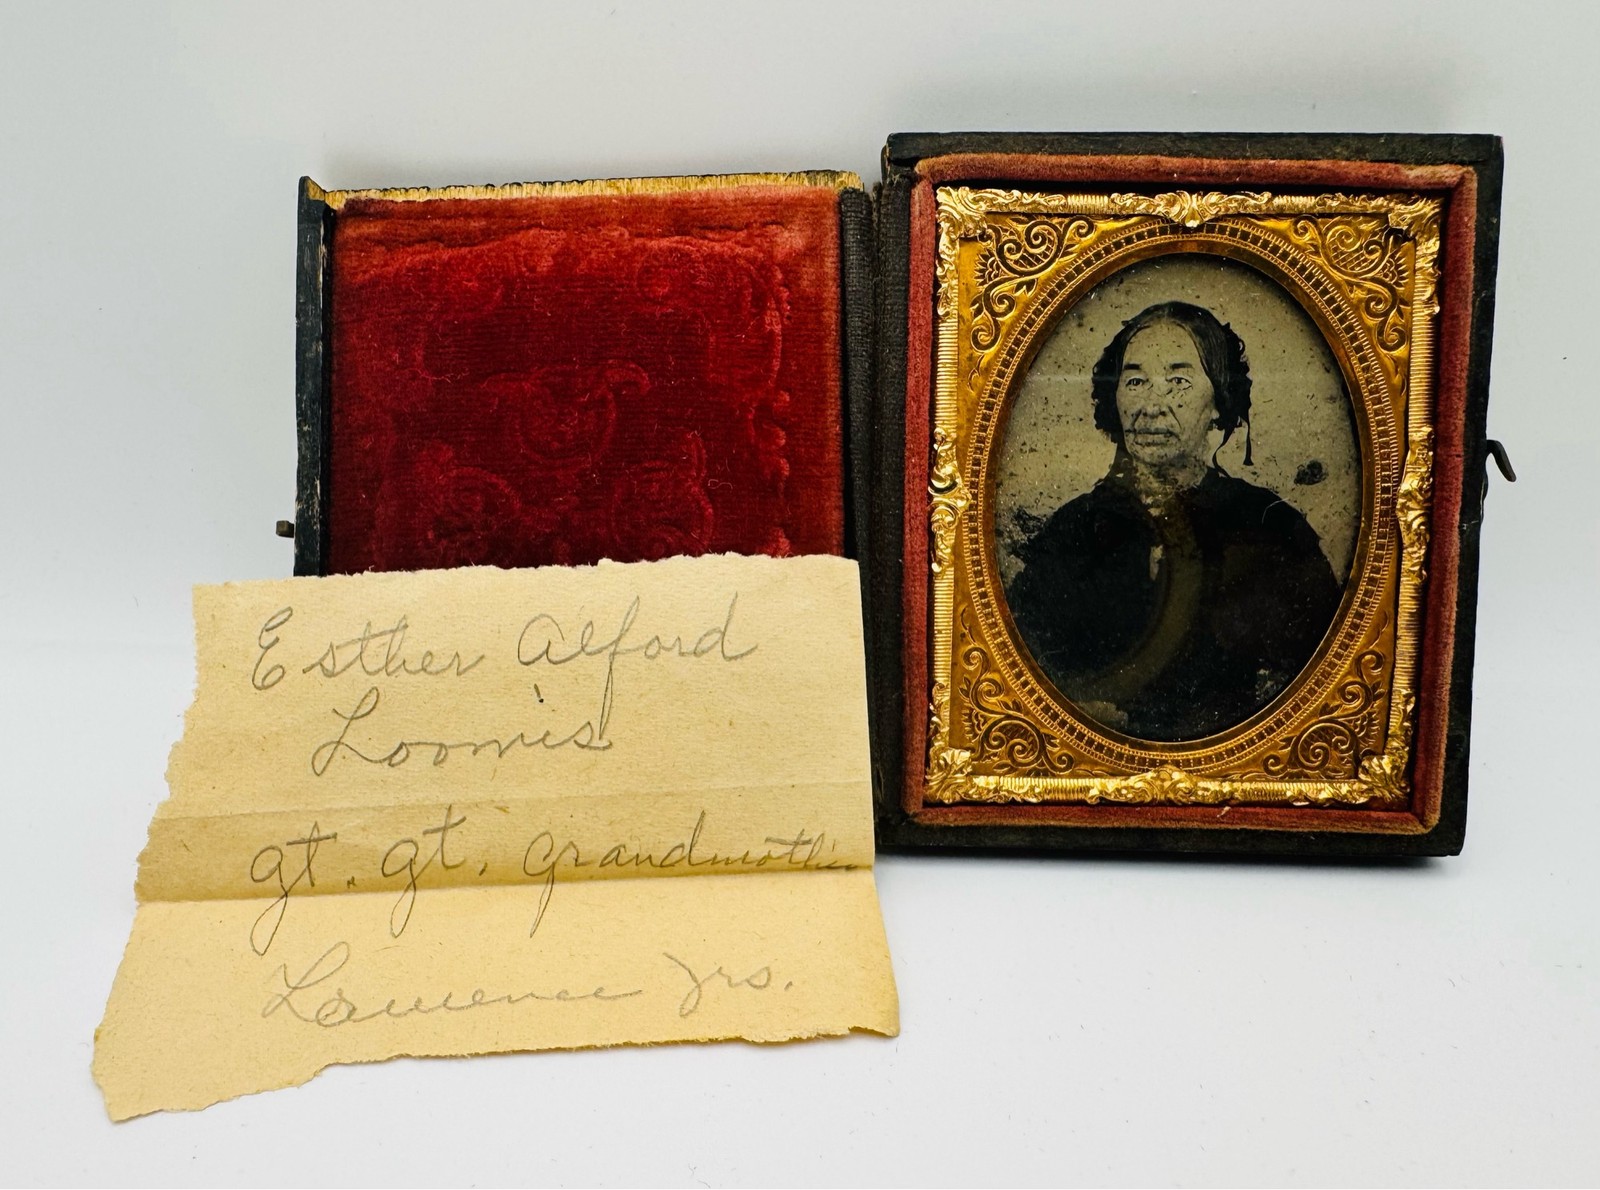 Esther Alford
Loomis
gt. gt. grandmother
Lawrence Jrs.